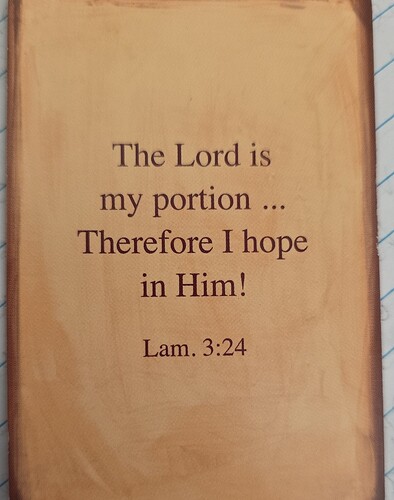 The Lord is
my portion ...
Therefore I hope
in Him!
Lam. 3:24